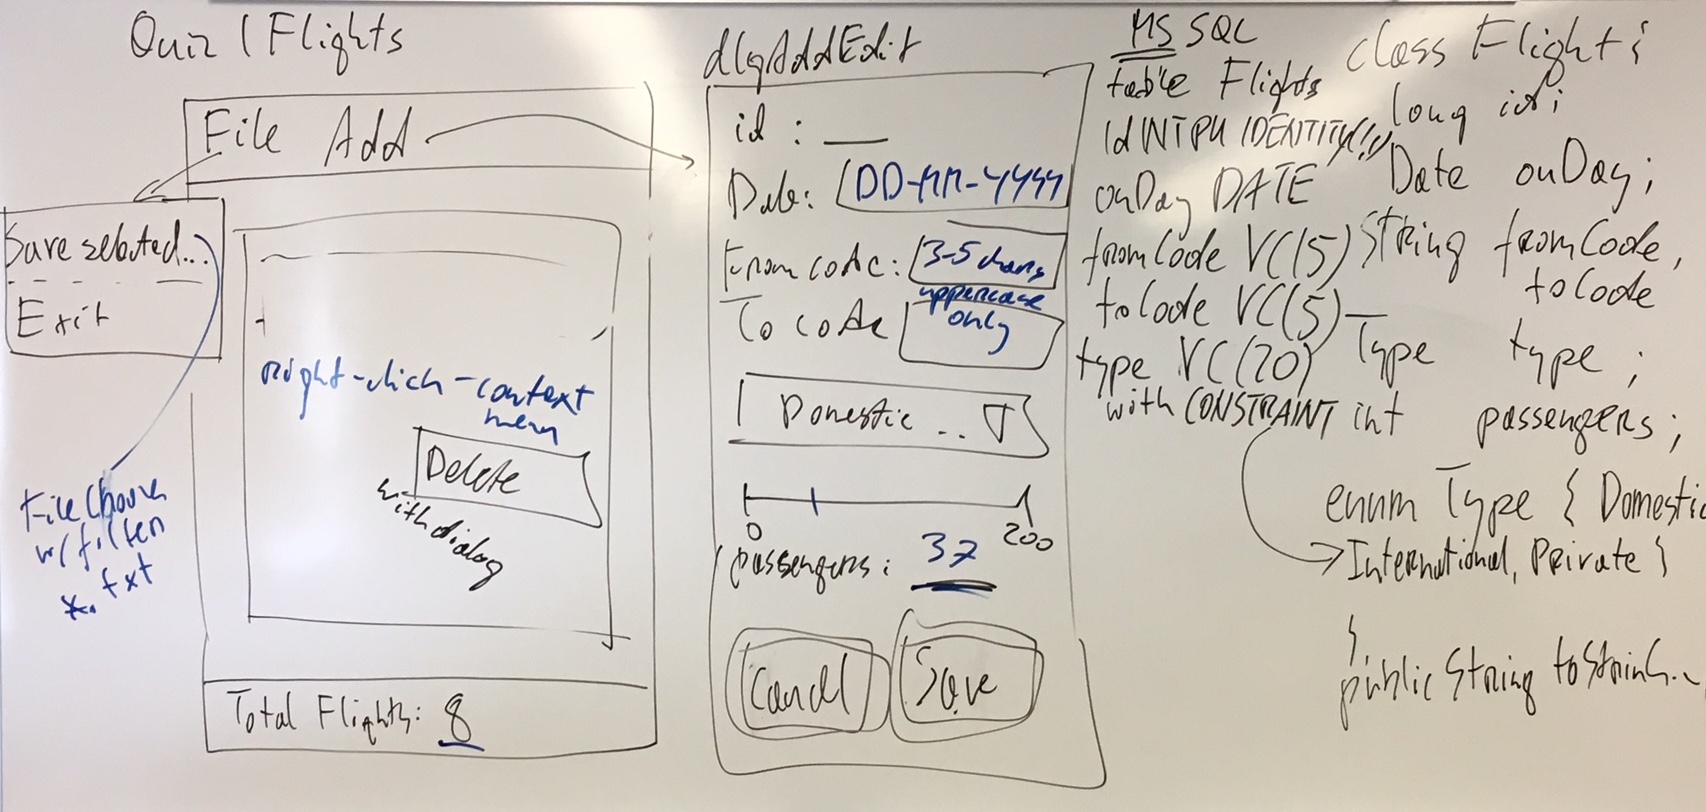 Quiz 1 Flights
File Add
Save selected...
Exit
right-click-context
menu
Delete
with dialog
File Chooser
w/ filter
*.txt
Total Flights: 8
dlgAddEdit
id : __
Date: DD-MM-YYYY
From code: 3-5 chars
uppercase
only
To code
Domestic ..
0
200
passengers: 37
Cancel
Save
MS SQL
table Flights
Id INT PK IDENTITY!!!
onDay DATE
fromCode VC(5)
toCode VC(5)
type VC(20)
with CONSTRAINT
class Flight {
long id;
Date onDay;
String fromCode,
toCode
Type type ;
int passengers;
enum Type { Domestic
International, Private }
}
public String toString..